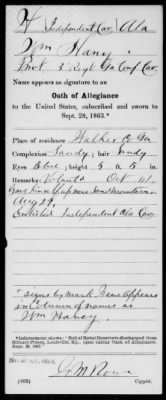 H | Independent Cav | Ala
Wm Haney
Pvt 3 Regt Ga Conf Cav
Name appears as signature to an
Oath of Allegiance
to the United States, subscribed and sworn to
Sept. 28, 1863.*
Place of residence Walker Co Ga
Complexion Sandy; hair Sandy
Eyes Blue; height 5 ft 5 in.
Remarks: Volunt'd Oct 61.
Gave himself up near Lookout Mountain
Aug 29.
Enlisted Independent Ala Cav
* signs by mark Name appears
in column of names as
Wm Haney.
*Indorsement shows: "Roll of Rebel Deserters discharged from
Military Prison, Louisville, Ky., upon taking Oath of Allegiance.
Sept. 28, 1863."
(658) Copyist.